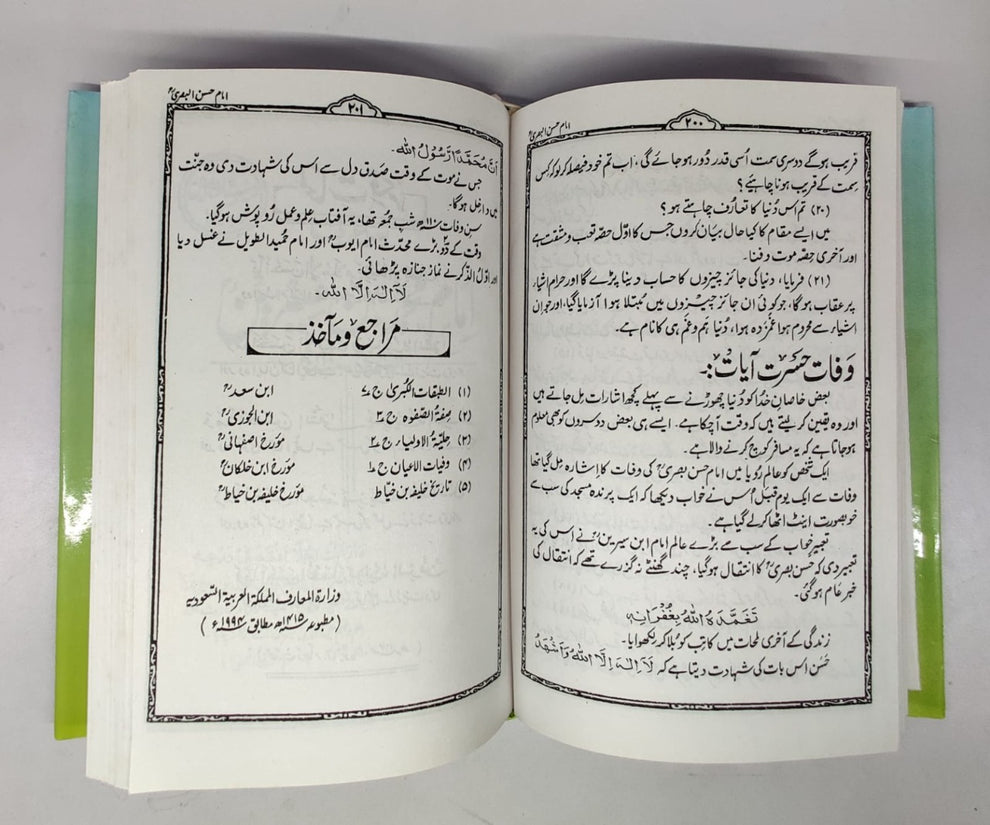 امام حسن البصریؒ
۲۰۰
قریب ہوگے دوسری سمت اُسی قدر دُور ہو جائے گی، اَب تم خود فیصلہ کر لو کہ کس
سِمت کے قریب ہونا چاہیے؟
(۲۰) تم اس دُنیا کا تعارُف چاہتے ہو؟
میں ایسے مقام کا کیا حال بیان کروں جس کا اوّل حصّہ تعب و مشقت ہے
اور آخری حِصّہ موت و فنا۔
(۲۱) فرمایا، دنیا کی جائز چیزوں کا حساب دینا پڑے گا اور حرام اشیار
پر عقاب ہوگا، جو کوئی ان جائز چیزوں میں مُبتلا ہوا آزمایا گیا، اور جو ان
اشیار سے محروم ہوا غمزدہ ہوا، دُنیا ہَم و غَم ہی کا نام ہے۔
وَفات حَسرَت آیات:۔
بعض خاصانِ خُدا کو دُنیا چھوڑنے سے پہلے کچھ اشارات مِل جاتے ہیں
اور وہ یقین کر لیتے ہیں کہ وقت آ چکا ہے۔ ایسے ہی بعض دوسروں کو بھی معلوم
ہو جاتا ہے کہ یہ مسافر کوچ کرنے والا ہے۔
ایک شخص کو عالمِ رُؤیا میں امام حسن بصریؒ کی وفات کا اِشارہ مِل گیا تھا
وفات سے ایک یوم قبل اُس نے خواب دیکھا کہ ایک پرندہ مسجد کی سب سے
خوبصورت اینٹ اٹھا کر لے گیا ہے۔
تعبیرِ خواب کے سب سے بڑے عالم امام ابن سیرینؒ نے اس کی یہ
تعبیر دی کہ حَسن بصریؒ کا انتقال ہو گیا، چند گھنٹے نہ گزرے تھے کہ انتقال کی
خبر عام ہو گئی۔
تَغَمَّدَہُ اللہُ بِغُفْرَانِہٖ
زندگی کے آخری لمحات میں کاتب کو بُلا کر لکھوایا۔
حَسن اس بات کی شہادت دیتا ہے کہ لَا اِلٰہَ اِلَّا اللہُ وَاَشْہَدُ
امام حسن البصریؒ
۲۰۱
اَنَّ مُحَمَّدًا رَّسُوْلُ اللہ۔
جس نے موت کے وقت صَدقِ دل سے اُس کی شہادت دی وہ جنّت
میں داخِل ہوگا۔
سن وفات ۱۱۰ھ شب جُمعہ تھا، یہ آفتابِ علم و عمل رُوپوش ہو گیا۔
وقت کے دوّ بڑے محدّث امام ایوبؒ اور امام حُمید الطویلؒ نے غسل دیا
اور اوّلُ الذّکر نے نماز جنازہ پڑھائی۔
لَآ اِلٰہَ اِلَّا اللہ۔
مَراجِع و مآخذ
(۱) الطبقات الکُبریٰ ج ۷ ابن سعدؒ
(۲) صِفَۃُ الصّفوہ ج ۳ ابن الجوزیؒ
(۳) حِلیَۃُ الاولیار ج ۲ مؤرخ اصفہانیؒ
(۴) وفیات الاعیان ج ۱ مؤرخ ابن خلکانؒ
(۵) تاریخ خلیفہ بن خیاط مؤرخ خلیفہ بن خیاطؒ
وزارۃ المعارف المملکۃ العربیۃ السّعودیہ
(مطبوعہ ۱۴۱۵ھ مطابق ۱۹۹۴ء)